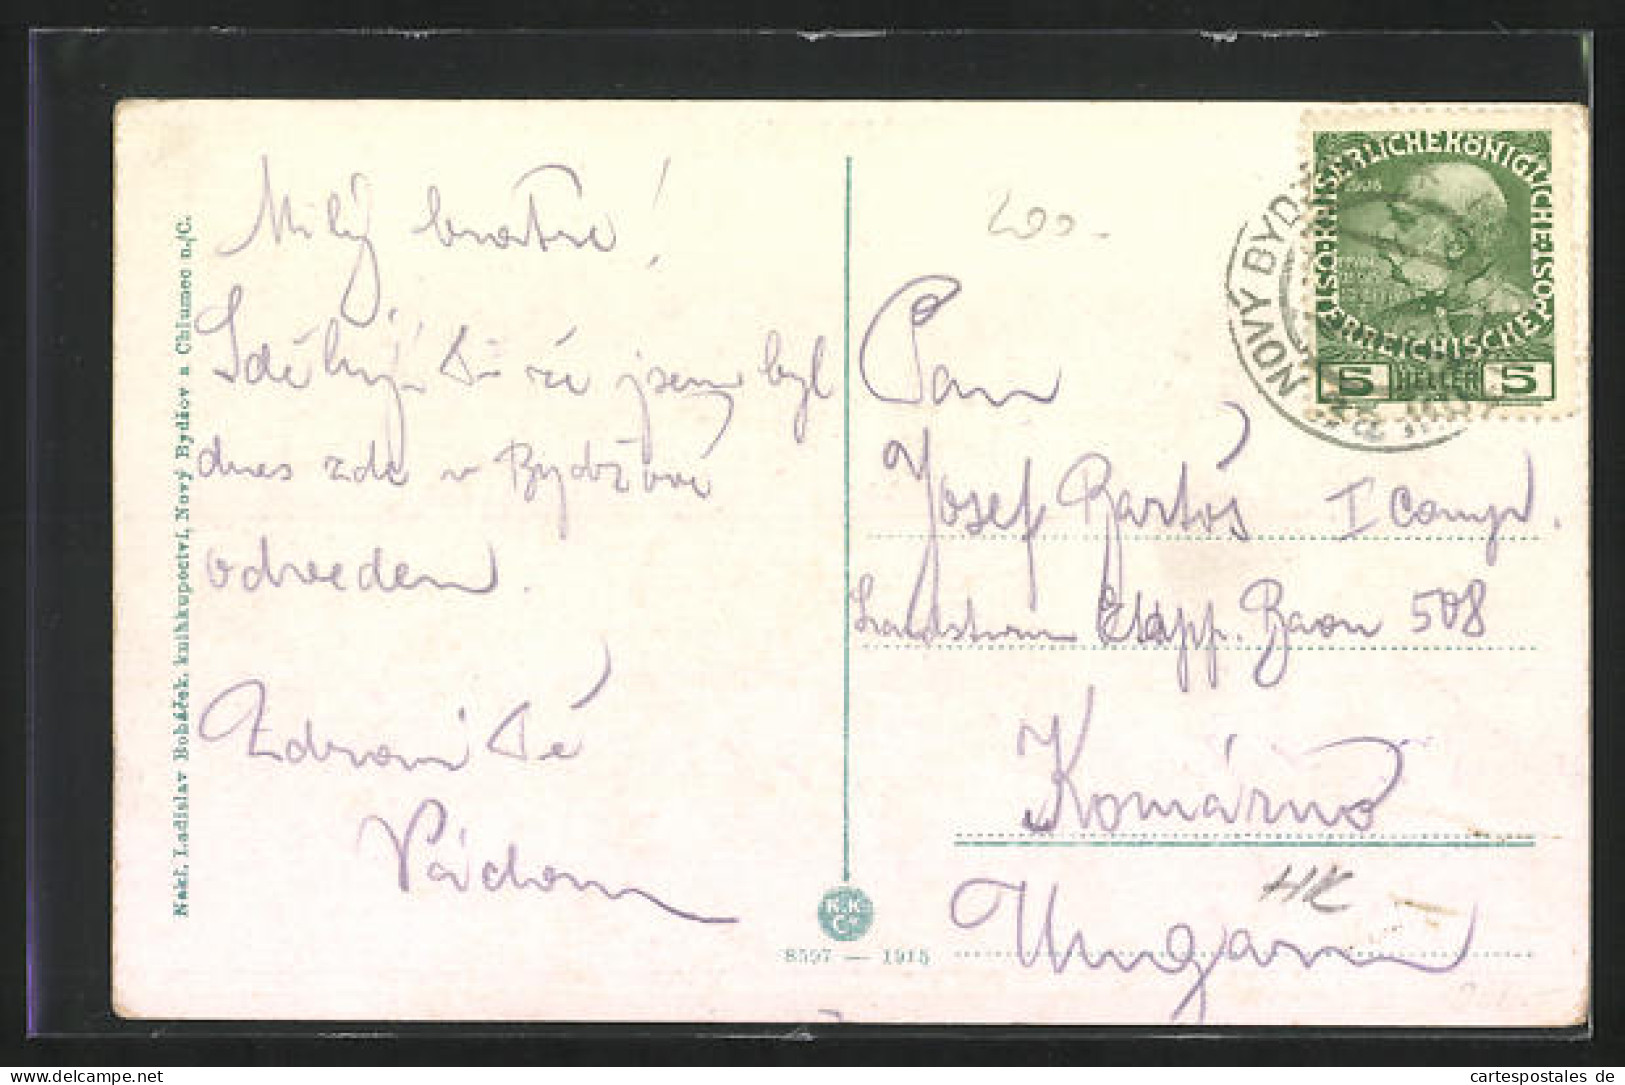 Milý bratře!
Sděluji Ti že jsem byl
dnes zde v Bydžově
odveden.
Zdraví Tě
200.-
Pan
Josef Bartoš I Comp.
Landsturm Etapp. Baon 508
Komárno
Ungarn
HK
Nakl. Ladislav Boháček, knihkupectví, Nový Bydžov a Chlumec n./C.
K.K. Co
8597 — 1915
KAISERLICHE KÖNIGLICHE ÖSTERREICHISCHE POST
1908
5 HELLER 5
NOVÝ BYDŽ
cartespostales de